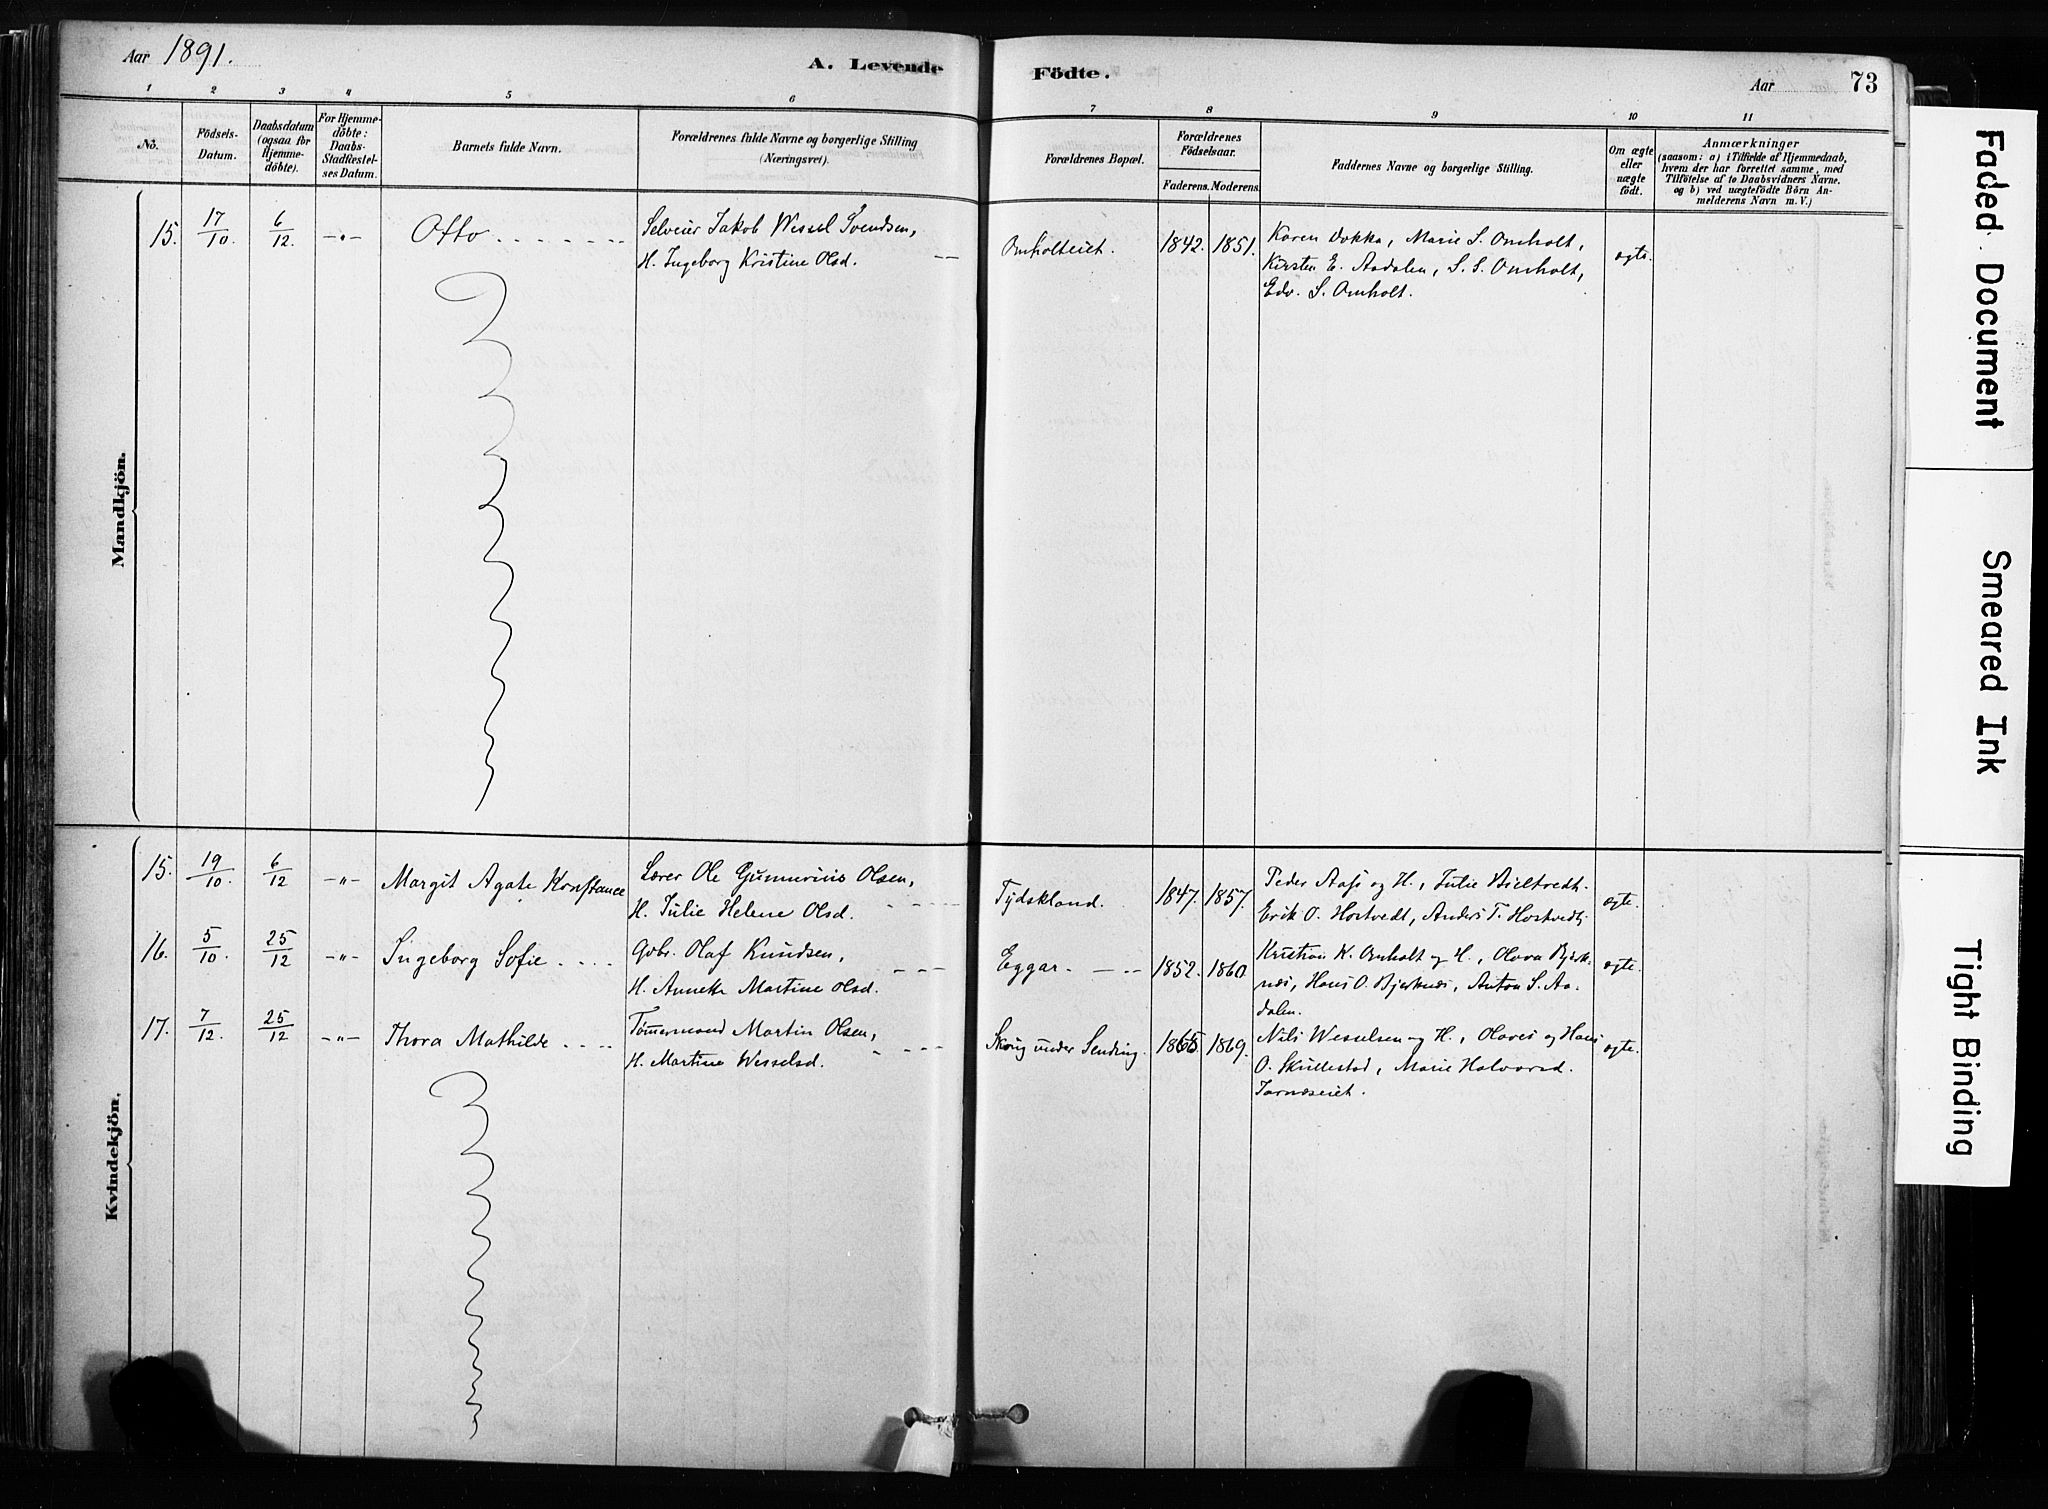 Aar 1891.
A. Levende
Födte.
Aar
73
1 2 3 4 5 6 7 8 9 10 11
No.
Födsels-
Datum.
Daabsdatum
(ogsaa for
Hjemme-
döbte).
For Hjemme-
döbte:
Daabs-
Stadfæstel-
ses Datum.
Barnets fulde Navn.
Forældrenes fulde Navne og borgerlige Stilling
(Næringsvei).
Forældrenes Bopæl.
Forældrenes
Födselsaar.
Faderens. Moderens.
Faddernes Navne og borgerlige Stilling.
Om ægte
eller
uægte
födt.
Anmærkninger
(saasom: a) i Tilfælde af Hjemmedaab,
hvem der har forrettet samme, med
Tilföielse af to Daabsvidners Navne,
og b) ved uægtefödte Börn An-
melderens Navn m. V.)
Mandkjön.
15. 17/10. 6/12. -„- Otto Selveier Jakob Wessel Svendsen, Omholteiet. 1842. 1851. Karen Dokka, Marie S. Omholt, ægte.
H. Ingeborg Kristine Olsd. Kirsten E. Aadalen, S. S. Omholt,
Edv. S. Omholt.
Kvindekjön.
15. 19/10. 6/12 -„- Margit Agate Konstance Lærer Ole Gunnerius Olsen, Tydskland. 1847. 1857. Peder Aas og H., Julie Bieltvedt. ægte.
H. Julie Helene Olsd. Erik O. Hostvedt, Anders T. Hostvedt.
16. 5/10. 25/12 -„- Ingeborg Sofie Gbr. Olaf Knudsen, Eggar. 1852. 1860 Kristian K. Omholt og H., Olava Bjerk- ægte.
H. Annette Martine Olsd. næs, Hans O. Bjerknæs, Anton S. Aa-
dalen.
17. 7/12. 25/12 -„- Thora Mathilde Tømermand Martin Olsen, Skoug under Sending. 1865 1869. Nils Wesselsen og H., Olaves og Hans ægte.
H. Martine Wesselsd. O. Skullestad, Marie Halvorsd.
Tarnæseiet.
Faded Document
Smeared Ink
Tight Binding